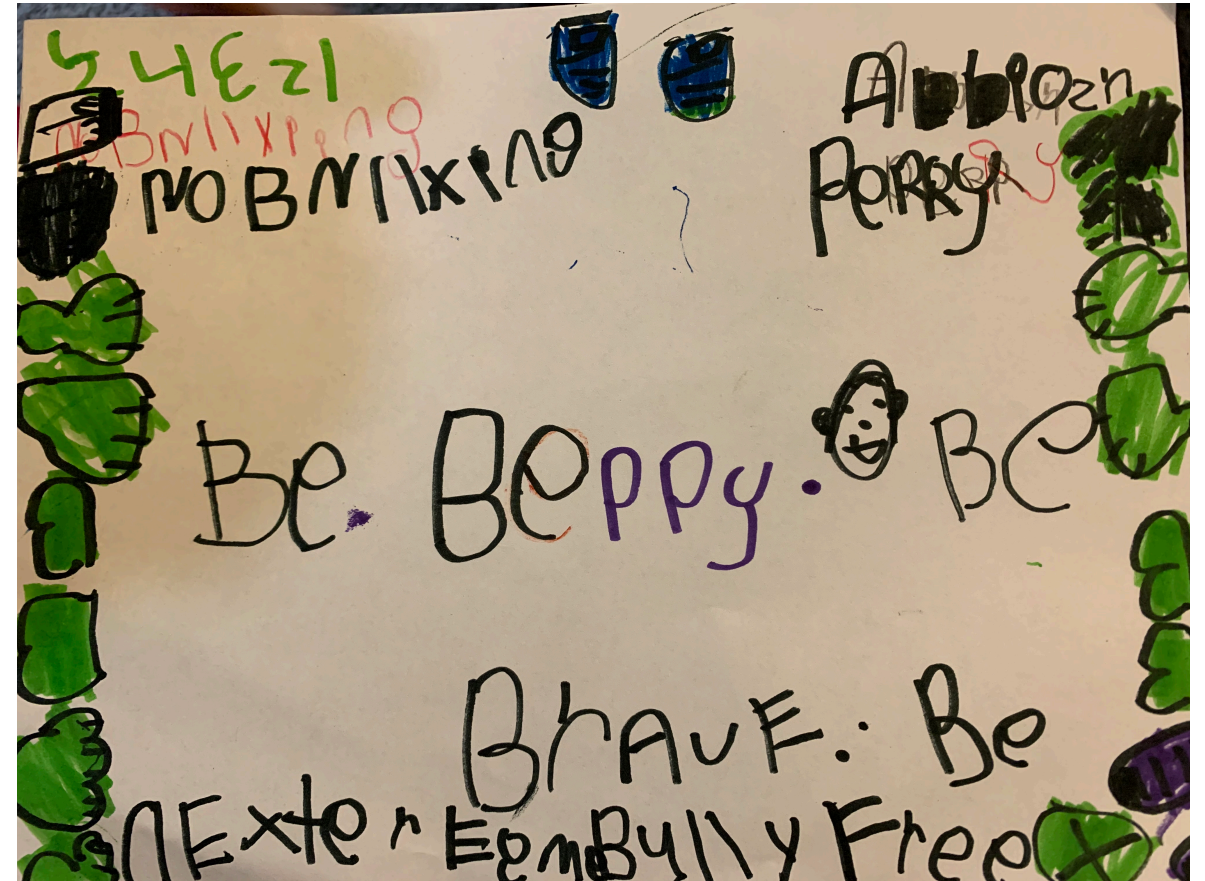 5 4 3 2 1
NOBNllxping
NO BNllxping
Perry
Be. Beppy. Be
BrAvE. : Be
nExter EemBully Free